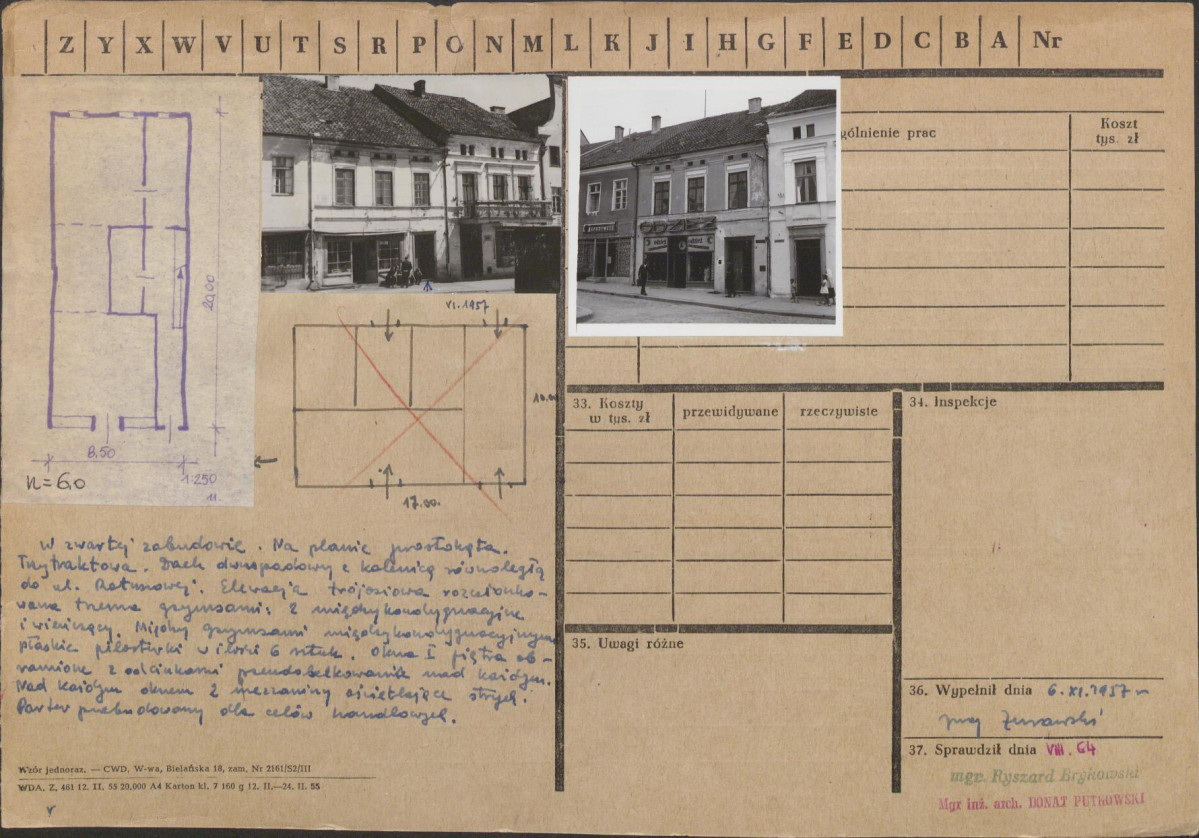 Z Y X W V U T S R P O N M L K J I H G F E D C B A Nr
gólnienie prac
Koszt
tys. zł
ODZIEŻ
VI. 1957
20,00
8,50
1:250
n=6,0
10.00
17.00.
33. Koszty
w tys. zł
przewidywane
rzeczywiste
34. Inspekcje
W zwartej zabudowie. Na planie prostokąta.
Trzytraktowa. Dach dwuspadowy z kalenicą równoległą
do ul. Ratuszowej. Elewacja trójosiowa rozczłonko-
wana trzema gzymsami: 2 międzykondygnacyjne
i wieńczący. Między gzymsami międzykondygnacyjnymi
płaskie pilasterki w ilości 6 sztuk. Okna I piętra ob-
ramione z odcinkami pseudobelkowania nad każdym.
Nad każdym oknem 2 mezzaniny oświetlające strych.
Parter przebudowany dla celów handlowych.
35. Uwagi różne
36. Wypełnił dnia 6.XI.1957 r
37. Sprawdził dnia VIII. 64
mgr. Ryszard Brykowski
Mgr inż. arch. DONAT PUTKOWSKI
Wzór jednoraz. — CWD, W-wa, Bielańska 18, zam. Nr 2161/S2/III
WDA. Z. 461 12. II. 55 20,000 A4 Karton kl. 7 160 g 12. II.—24. II. 55